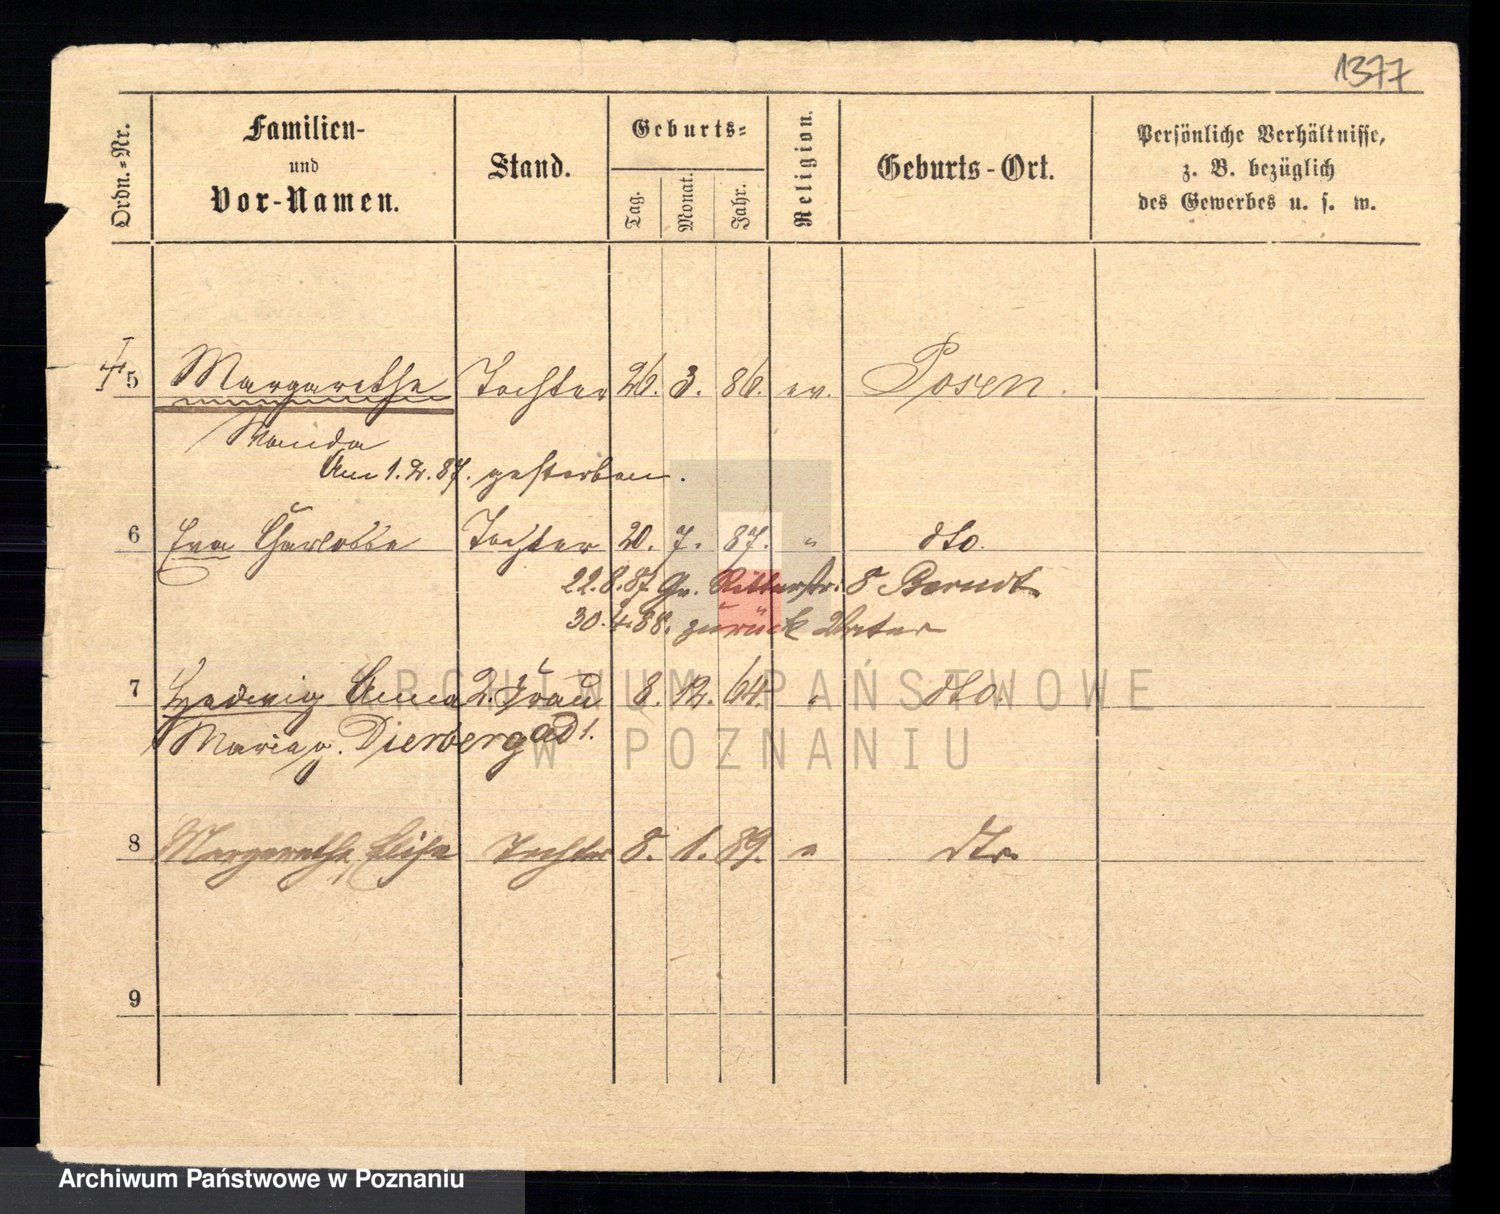 1377
Ordn.-Nr. Familien- und Vor-Namen. Stand. Geburts- Tag. Monat. Jahr. Religion. Geburts-Ort. Persönliche Verhältnisse, z. B. bezüglich des Gewerbes u. s. w.
5 Margarethe Tochter 26. 3. 86. ev. Posen.
Wanda
Am 1. 2. 87. gestorben.
6 Eva Charlotte Tochter 20. 7. 87. " dto.
22.8.87. Gr. Ritterstr. 8 Berndt
30.4.88. zurück Vater
7 Hedwig Anna 2. Frau 8. 12. 64. " dto.
Maria g. Dierberg ad 1.
8 Margarethe Elise Tochter 8. 1. 89. " dto.
9
ARCHIWUM PAŃSTWOWE
W POZNANIU
Archiwum Państwowe w Poznaniu